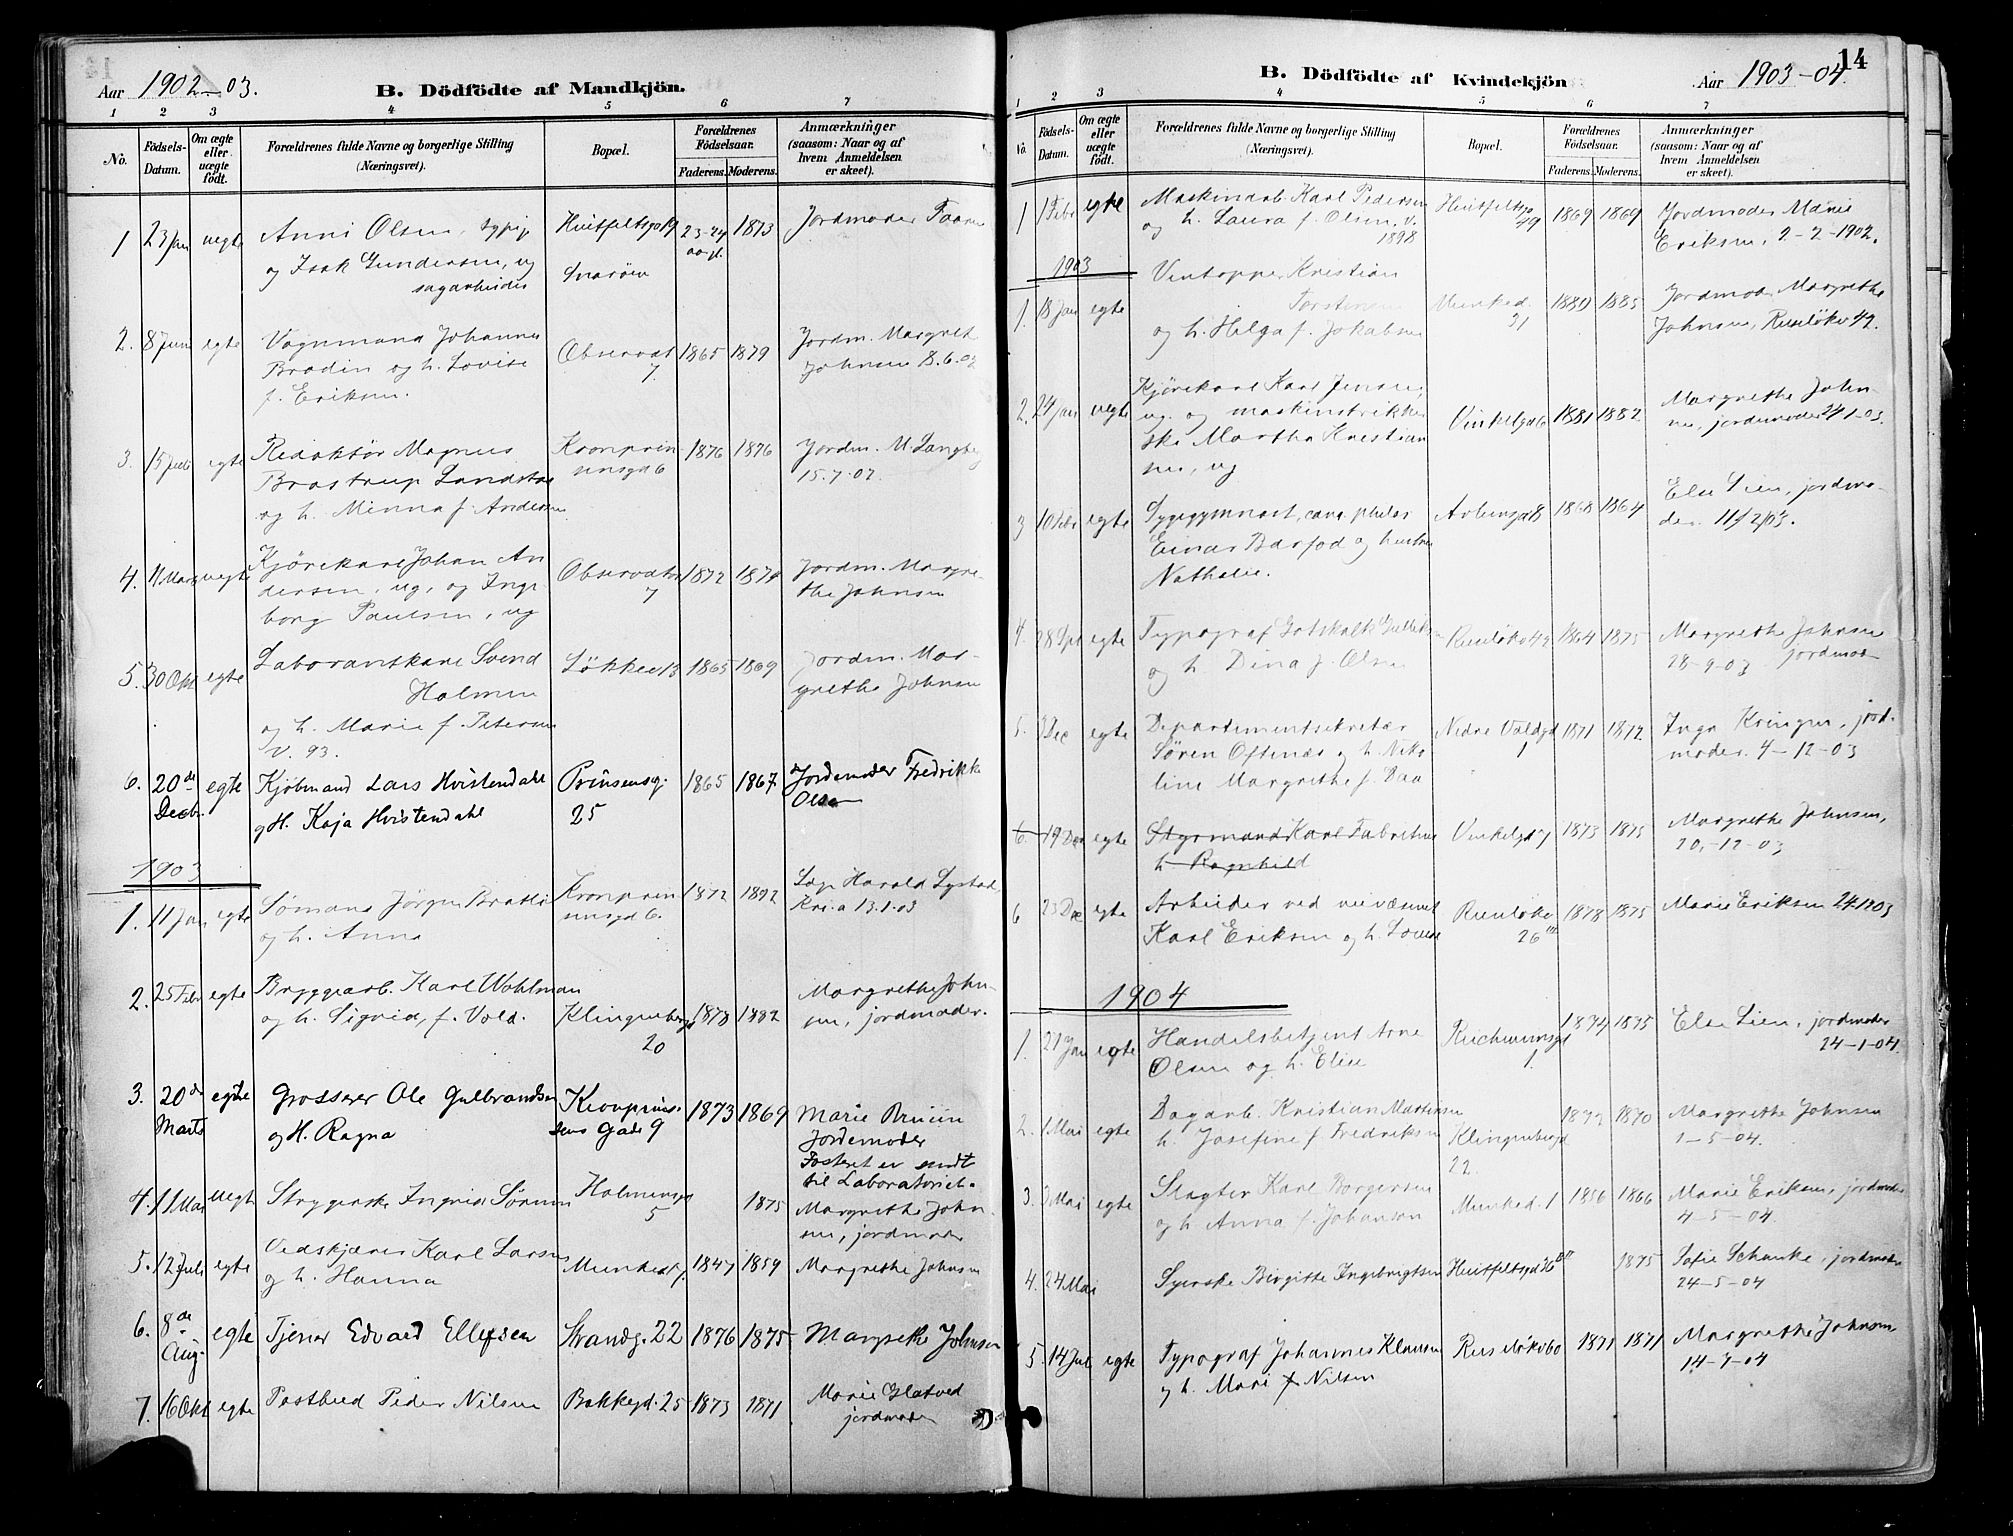 Aar 1902-03.
B. Dödfödte af Mandkjön.
1 2 3 4 5 6 7
No. Födsels-Datum. Om ægte eller uægte födt. Forældrenes fulde Navne og borgerlige Stilling (Næringsvei). Bopæl. Forældrenes Födselsaar. Faderens. Moderens. Anmærkninger (saasom: Naar og af hvem Anmeldelsen er skeet).
1 23 Jan uegte Anni Olsen, Huitfeltsg 19 23-24 1873 Jordmoder
og Isak Gundersen, ug Snarøen
sagarbeider
2. 8 Juni egte Vognmand Johannes Observat 1865 1879 Jordm. Margret
Brodin og h. Lovise 7. Johnsen 8.6.02
f. Eriksen.
3. 15 Juli egte Redaktør Magnus Kronprin 1876 1876 Jordm. M. Langberg
Brostrup Landstad sensgd 6 15.7.02.
og h. Minna f. Andersen
4. uegte Kjørekarl Johan An Observator 1872 1874 Jordm. Margre-
dersen, ug, og Inge 7 the Johnsen
borg Paulsen, ug
5. 30 Okt egte Laborantkarl Svend Løkkev 13 1865 1869 Jordm. Mar-
Holmen grethe Johnsen
og h. Marie f. Petersen
V. 93.
6. 20de Decbr. egte Kjøbmand Lars Hvistendahl Prinsensg. 1865 1867 Jordemoder Fredrikke
og H. Kaja Hvistendahl 25 Olsen
1903
1. 11 Jan egte Sømand Jørgen Bratli Kronprin 1872 Læge Harald Lystad,
og h. Anna sensgd 6. Kr.a 13.1.03
2. 25 Febr egte Bryggearb. Karl Wohlman Klingenbergd 1878 1882 Margrethe John-
og h. Sigrid, f. Vold. 20 sen, jordmoder.
3. 20de Marts egte Grosserer Ole Gulbrandsen Kronprins- 1873 1869 Marie Bruun
og H. Ragna sens Gade 9 Jordemoder
Fosteret er sendt
til Laboratoriet.
4. 11 Mai uegte Strygerske Ingrid Sørum Holmensgd 1875 Margrethe John-
5 sen, jordmoder
5. 12 Juli egte Vedskjærer Karl Larsen Munked 7. 1847 1859 Margrethe Johnsen
og h. Hanna
6. 8de Aug. egte Tjener Edvard Ellefsen Strandg. 22 1876 1875 Margrethe Johnsen
7. 16 Okt egte Postbud Peder Nilsen Bakkegd. 25 1873 1871 Marie Glatved
jordmoder
14
B. Dödfödte af Kvindekjön
Aar 1903-04.
1 2 3 4 5 6 7
No. Födsels-Datum. Om ægte eller uægte födt. Forældrenes fulde Navne og borgerlige Stilling (Næringsvei). Bopæl. Forældrenes Födselsaar. Faderens. Moderens. Anmærkninger (saasom: Naar og af hvem Anmeldelsen er skeet).
1 1 Febr egte Maskinarb. Karl Pedersen Huitfeltsgd 1869 1869 Jordmoder Marie
og h. Laura f. Olsen, v. 49 Eriksen, 2-2-1902.
1898
1903
1. 18 Jan egte Vintapper Kristian Munked. 1880 1885 Jordmoder Margrethe
Torstensen 31 Johnsen, Ruseløkv 49.
og h. Helga f. Jakobsen
2. 24 Jan uegte Kjørekarl Karl Jensen, Vinkelgd 6 1881 1882 Margrethe John-
ug. og maskinstrikker sen, jordmoder 24-1-03.
ske Martha Kristian
sen, ug
3 10 Febr egte Sygegymnast, cand. philos Arbinsgd 8 1868 1864 Else Lien, jordmo-
Einar Barfod og hustru der. 11/2/03.
Nathalie.
4. 28 Spt egte Typograf Gotskalk Gulliksen Ruseløkv 49 1864 1875 Margrethe Johnsen
og h. Dina f. Olsen 28-9-03 jordmoder
5. 3 Dec egte Departementsekretær Nedre Voldgd 1871 1872 Inga Kringen, jord-
Søren Oftenæs og h. Niko 1 moder. 4-12-03
line Margrethe f. Daa
6. 19 Dec egte Styrmand Karl Fabritius Vinkelgd 7 1873 1875 Margrethe Johnsen,
h. Ragnhild 20-12-03
6 23 Dec egte Arbeider ved veivæsenet Ruseløkv 1878 1875 Marie Eriksen 24-12-03
Karl Eriksen og h. Lovise 26
1904
1. 21 Jan egte Handelsbetjent Arne Reichweinsgd 1874 1875 Else Lien, jordmoder
Olsen og h. Elise 1. 24-1-04.
2. 1 Mai egte Dagarb. Kristian Martinsen Klingenbergd 1872 1870 Margrethe Johnsen
h. Josefine f. Fredriksen 22. 1-5-04.
3. 3 Mai egte Slagter Karl Borgersen Munked. 1 1856 1866 Marie Eriksen, jordmoder
og h. Anna f. Johanson 4-5-04.
4. 24 Mai Syerske Birgitte Ingebrigtsen Huitfeltsgd 16 1875 Sofie Schanke, jordmoder
24-5-04
5. 14 Jul egte Typograf Johannes Klausen Ruseløkv 60 1871 1871 Margrethe Johnsen
og h. Mari f. Nilsen 14-7-04